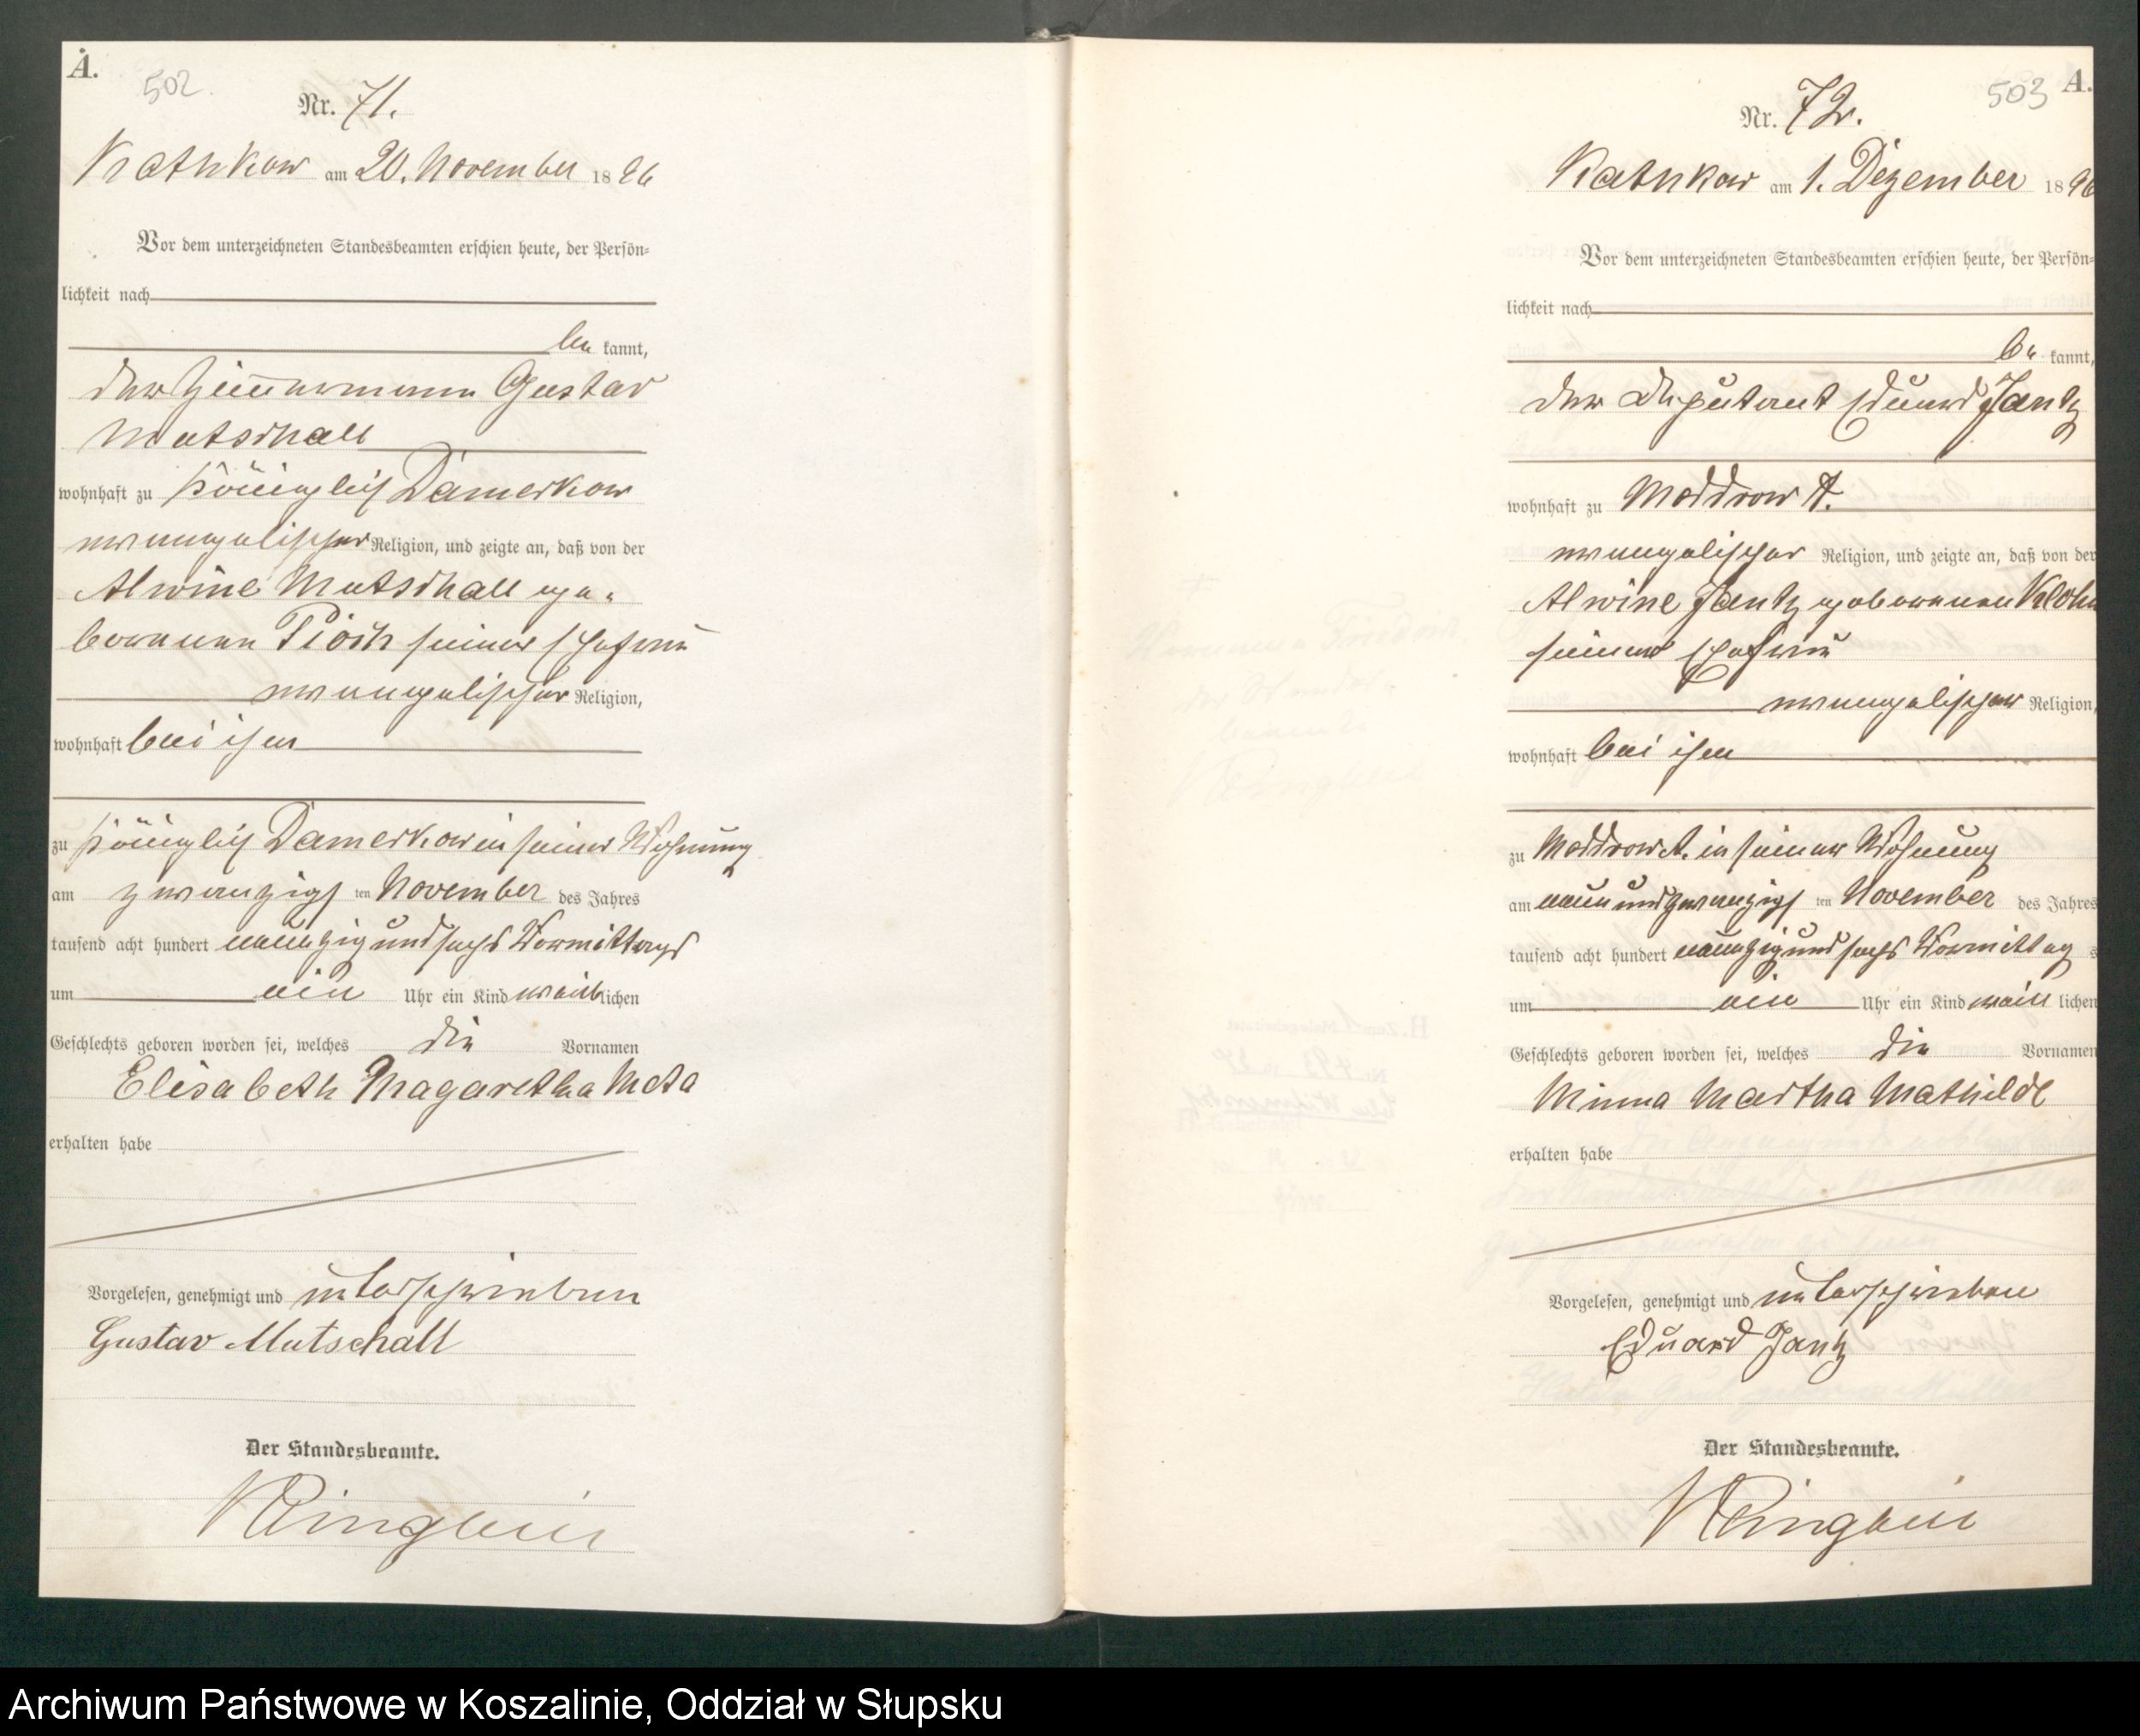 A.
502.
Nr. 71.
Rathkow am 20. November 1896
Vor dem unterzeichneten Standesbeamten erschien heute, der Persön-
lichkeit nach
be kannt,
der Zimmermann Gustav
Mutschall
wohnhaft zu Königlich Damerkow
evangelischer Religion, und zeigte an, daß von der
Alwine Mutschall ge-
borenen Pioch seiner Ehefrau
evangelischer Religion,
wohnhaft bei ihm
zu Königlich Damerkow in seiner Wohnung
am zwanzigs ten November des Jahres
tausend acht hundert neunzig und sechs Vormittags
um ein Uhr ein Kind weiblichen
Geschlechts geboren worden sei, welches die Vornamen
Elisabeth Magaretha Meta
erhalten habe
Vorgelesen, genehmigt und unterschrieben
Gustav Mutschall
Der Standesbeamte.
503
A.
Nr. 72.
Rathkow am 1. Dezember 1896
Vor dem unterzeichneten Standesbeamten erschien heute, der Persön-
lichkeit nach
be kannt,
der Deputant Eduard Jantz
wohnhaft zu Moddrow A.
evangelischer Religion, und zeigte an, daß von der
Alwine Jantz geborenen
seiner Ehefrau
evangelischer Religion,
wohnhaft bei ihm
zu Moddrow A. in seiner Wohnung
am neunundzwanzigs ten November des Jahres
tausend acht hundert neunzig und sechs Vormittag s
um ein Uhr ein Kind weib lichen
Geschlechts geboren worden sei, welches die Vornamen
Minna Martha Mathilde
erhalten habe
Vorgelesen, genehmigt und unterschrieben
Eduard Jantz
Der Standesbeamte.
Archiwum Państwowe w Koszalinie, Oddział w Słupsku